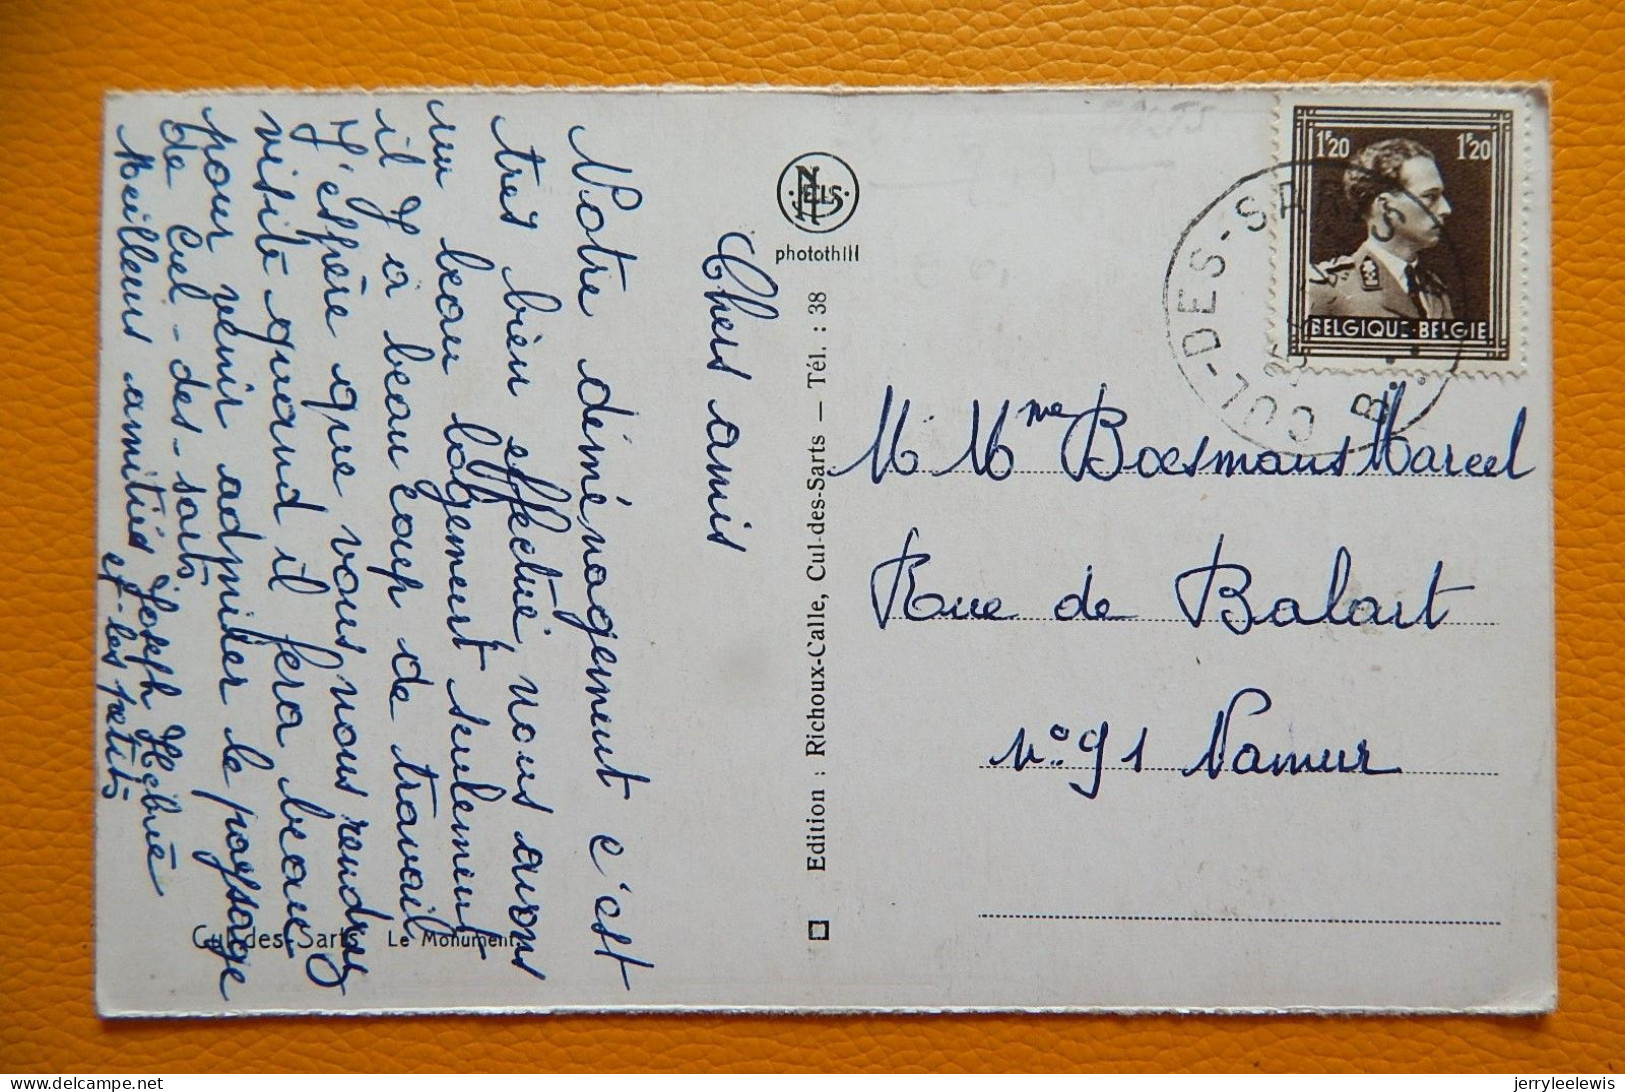 Chers amis
Notre déménagement c'est
tres bien effectué, nous avons
un beau logement seulement
il y à beaucoup de travail
J'espère que vous nous rendrez
visite quand il fera beau
pour venir admirer le paysage
de Cul-des-sarts.
Meilleurs amitiés Joseph Hebrué
et les petits
Cul-des-Sarts Le Monument.
NELS
photothill
Edition : Richoux-Calle, Cul-des-Sarts — Tél. : 38
1F20 1F20
BELGIQUE-BELGIE
CUL-DES-SARTS
M Mme Boesmans Marcel
Rue de Balart
N° 91 Namur
jerryleelewis